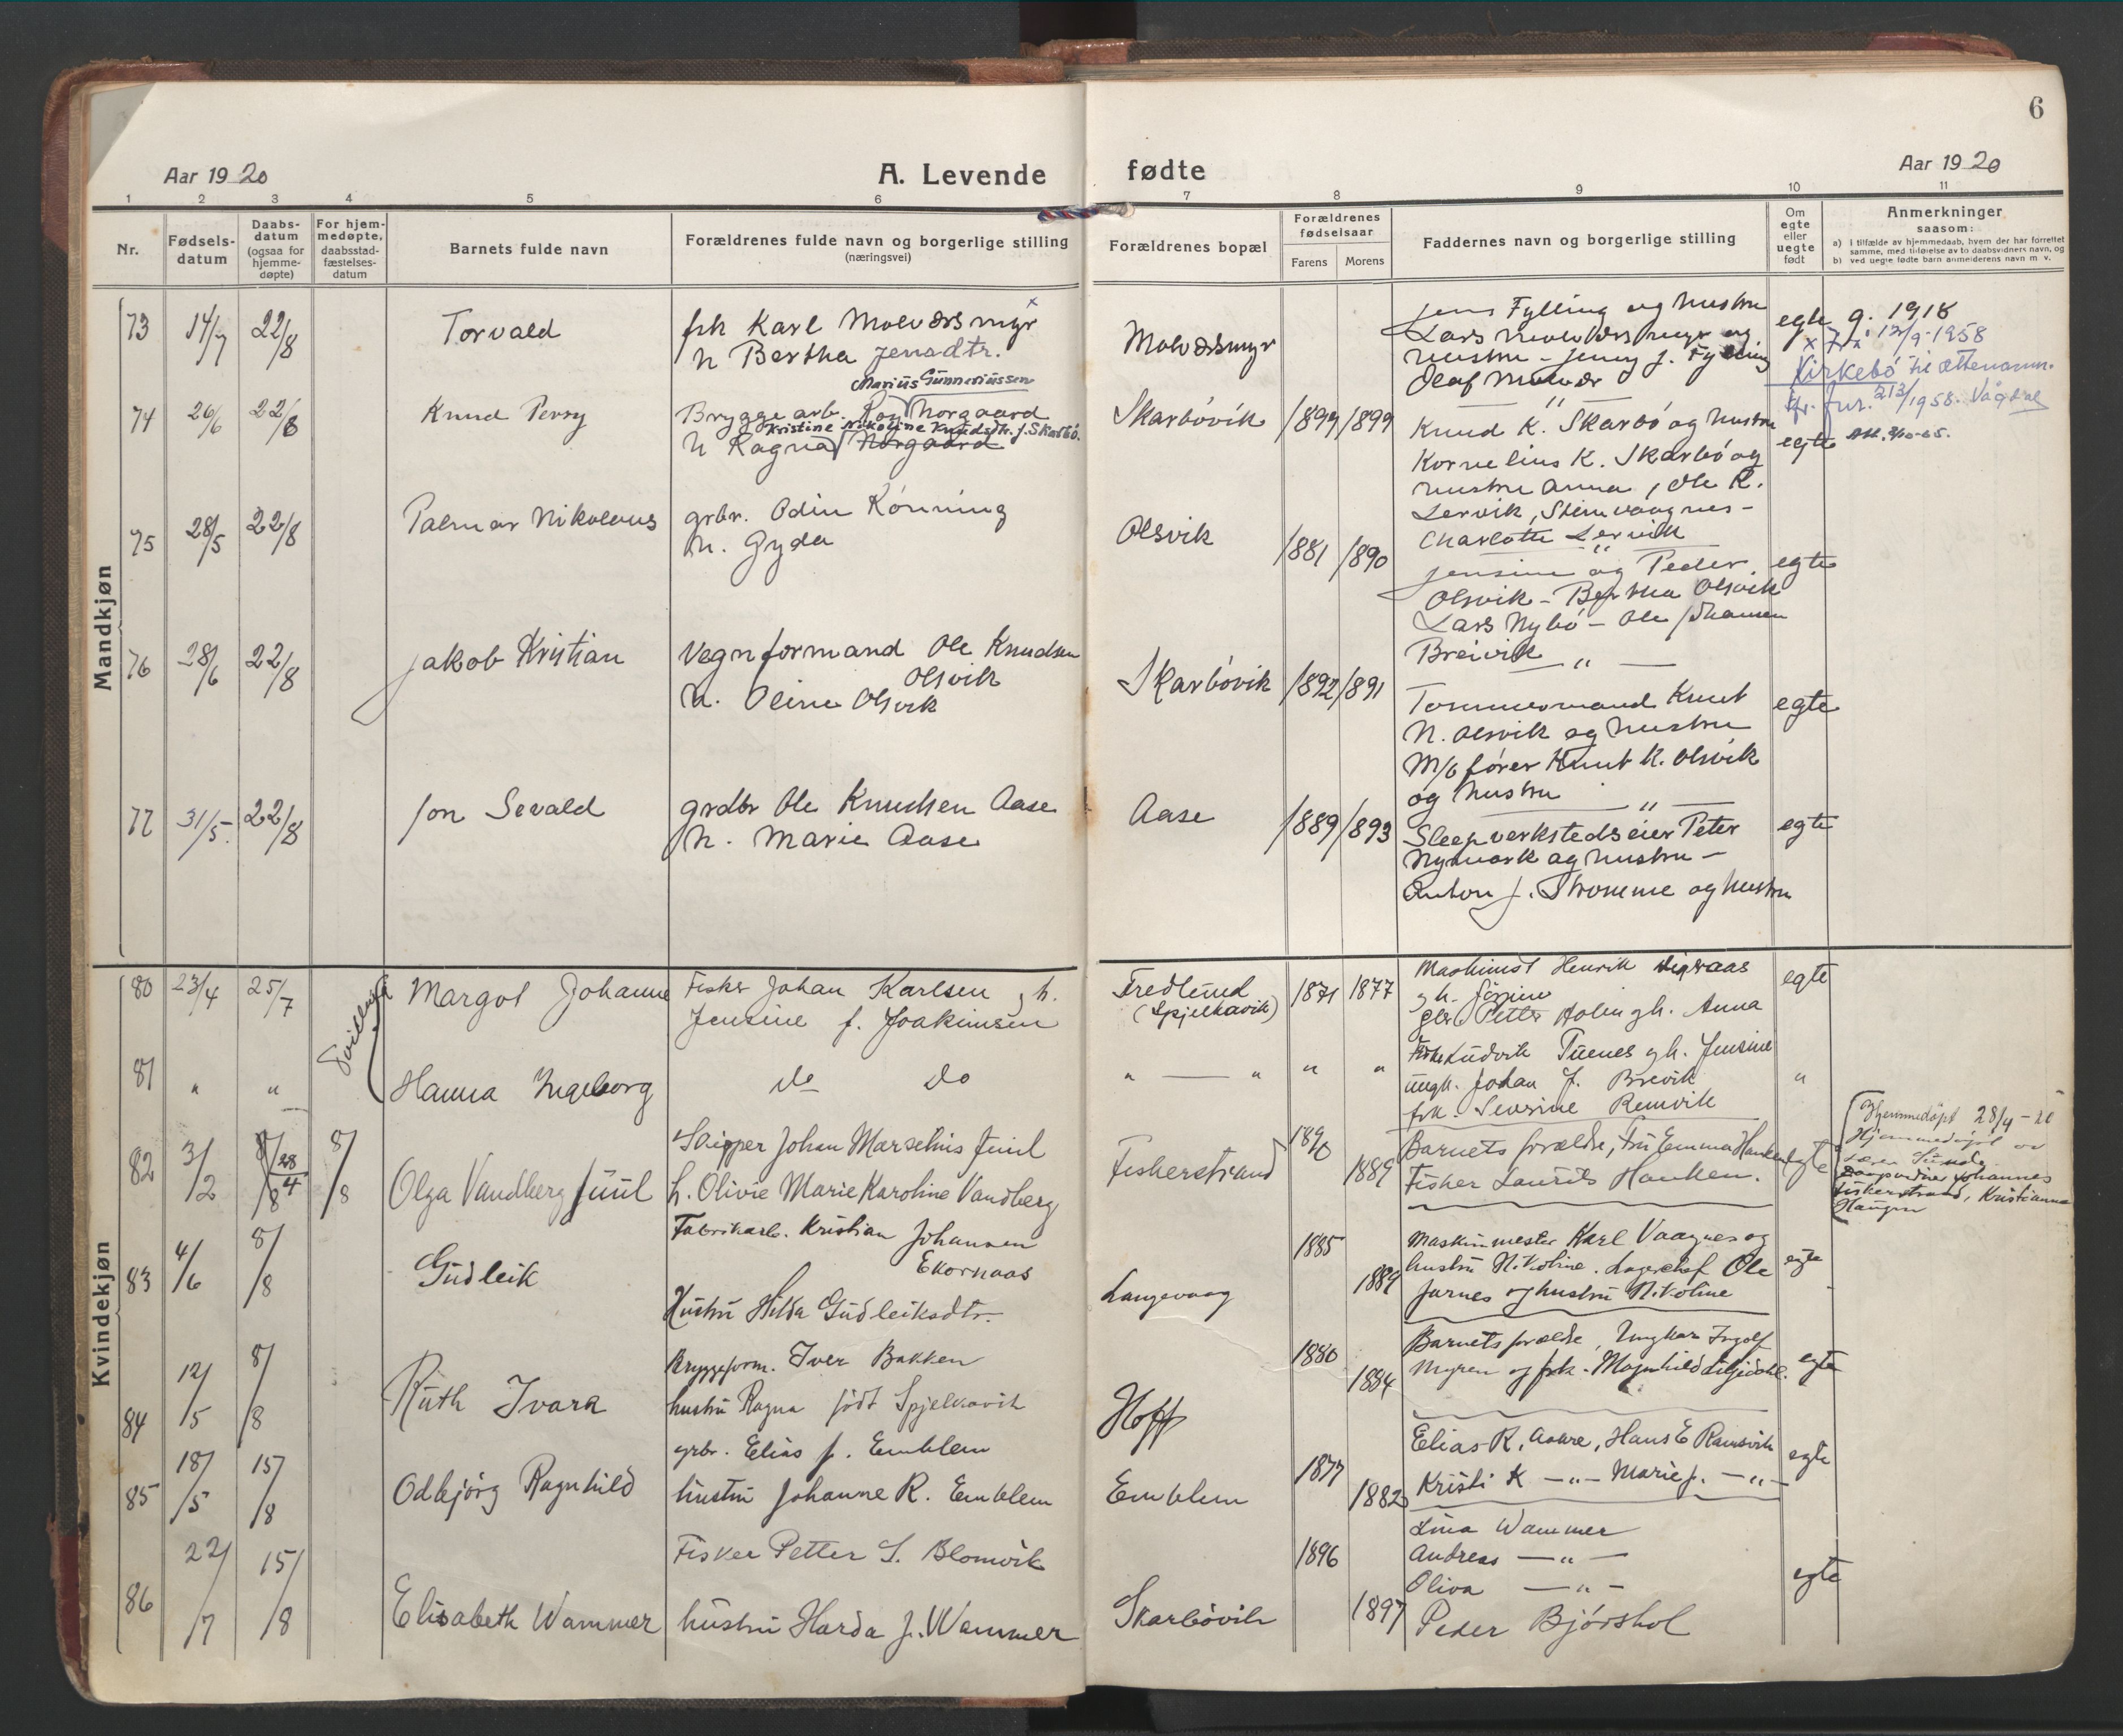 6
Aar 1920
A. Levende fødte
Aar 1920
1 2 3 4 5 6 7 8 9 10 11
Nr.
Fødsels-
datum
Daabs-
datum
(ogsaa for
hjemme-
døpte)
For hjem-
medøpte,
daabsstad-
fæstelses-
datum
Barnets fulde navn
Forældrenes fulde navn og borgerlige stilling
(næringsvei)
Forældrenes bopæl
Forældrenes
fødselsaar
Farens
Morens
Faddernes navn og borgerlige stilling
Om
egte
eller
uegte
født
Anmerkninger
saasom:
a) i tilfælde av hjemmedaab, hvem der har forrettet
samme, med tilføielse av to daabsvidners navn, og
b) ved uegte fødte barn anmelderens navn m. v.
Mandkjøn
73 14/7 22/8 Torvald
fsk Karl Molværsmyr x
h Bertha Jensdtr.
Molværsmyr
Jens Fylling og hustru
Lars Molværsmyr og
hustru - Jenny J. Fylling
Olaf Molvær
egte g. 1918
x Fra 12/9-1958
Kirkebö til ættenavn.
513/1958. Vågdal
74 26/6 22/8 Knud Perry
Marius Gunneriussen
Bryggearb. Roy Norgaard
Kristine Nikoline Knudsdtr. f. Skarbø.
h Ragna Norgaard
Skarbövik 1899 1899
Knud K. Skarbö og hustru
Kornelius K. Skarbö og
hustru Anna, Ole R.
Lervik, Steinvaagnes -
Charlotte Lervik
egte
75 28/5 22/8 Palmar Nikolaus
grbr. Odin Rönning
h. Gyda
Olsvik 1881 1890
Jensine og Peder
Olsvik - Bertha Olsvik
Lars Nybö - Ole Johansen
Breivik
egte
76 28/6 22/8 Jakob Kristian
Vegnformand Ole Knudsen
Olsvik
h. Oline Olsvik
Skarbövik 1892 1891
Tömmermand Knut
N. Olsvik og hustru
M/b förer Knut K. Olsvik
og hustru
egte
77 31/5. 22/8 Jon Sevald
grdbr Ole Knudsen Aase
h. Marie Aase
Aase 1889 1893
Sleepverkstedseier Peter
Nymark og hustru -
Anton J. Stromme og hustru
egte
Kvindekjøn
80 23/4 25/7 Tvillinger Margot Johanne
Fisker Johan Karlsen g h.
Jensine f. Joakimsen
Fredlund
(Spjelkavik)
1871 1877
Maskinist Henrik
g h. Jörgine
Petter Holen g h. Anna
egte
81 " " Hanna Ingeborg
do do
" — " " "
Ludvik Tuenes g h. Jensine
ungk. Johan J. Brevik
frk. Severine Remvik
"
82 3/2 8/8 28/4 8/8 Olga Vandberg Juul
Skipper Johan Marselius Juul
h. Olivie Marie Karoline Vandberg
Fiskerstrand 1890 1889
Barnets forældre, fru Emma Hanken
Fisker Laurits Hanken.
egte
Hjemmedöpt 28/4-20
Hjemmedöpt av
daapsvidner Johannes
Fiskerstrand, Kristianna
Haugen
83 4/6 8/8 Gudleik
Fabrikarb. Kristian Johansen
Ekornaas
Hustru Hilda Gudleiksdtr.
Langevaag 1885 1889
Maskinmester Karl Vaagnes og
hustru Nikoline. Lagerchef Ole
Furnes og hustru Nikoline
egte
84 12/5 8/8 Ruth Ivara
Bryggeform. Iver Bakken
hustru Ragna född Spjelkavik
Hoff 1880 1884
Barnets forældre, Ungkar Ingolf
Myren og frk. Magnhild Liljedahl.
egte
85 18/5 15/8 Odbjörg Ragnhild
grbr. Elias J. Emblem
hustru Johanne R. Emblem
Emblem 1877 1882
Elias R. Aakre, Hans E Ramsvik
Kristi K —"— Marie J. —"—
egte
86 22/7 15/8 Elisabeth Wammer
Fisker Petter S. Blomvik
hustru Harda J. Wammer
Skarbövik 1896 1897
Lina Wammer
Andreas —"—
Oliva —"—
Peder Bjórshol
egte